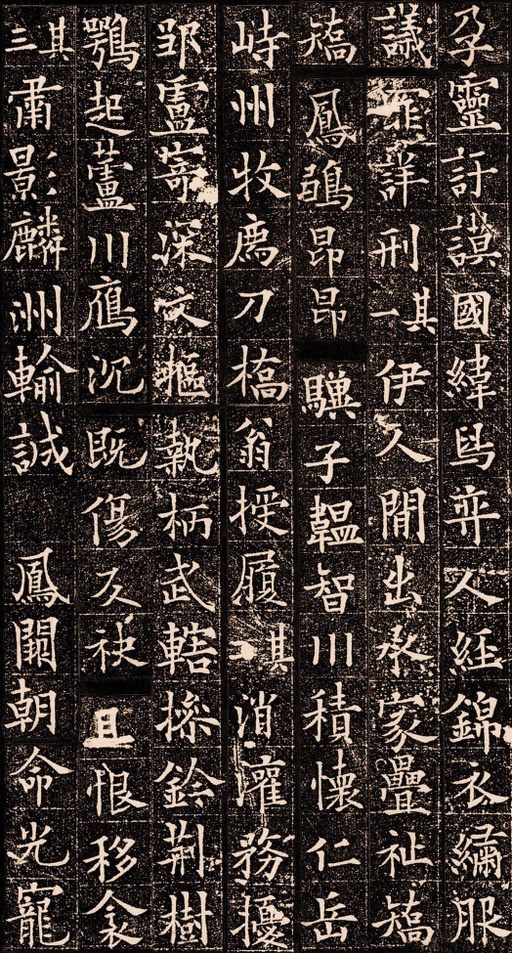 孕靈訏謨國緯舄弈人經錦衣繡服
議罪詳刑其一伊人閒出承家疊祉矯
矯鳳鶵昂昂驥子韞智川積懷仁岳
峙州牧薦刀橋翁授履其消灌務擾
鄒盧寄深文樞執柄武轄操鈐荊樹
鶚起蘆川鴈沉既傷反袂且恨移衾
其三肅影麟洲輸誠鳳闕朝命光寵